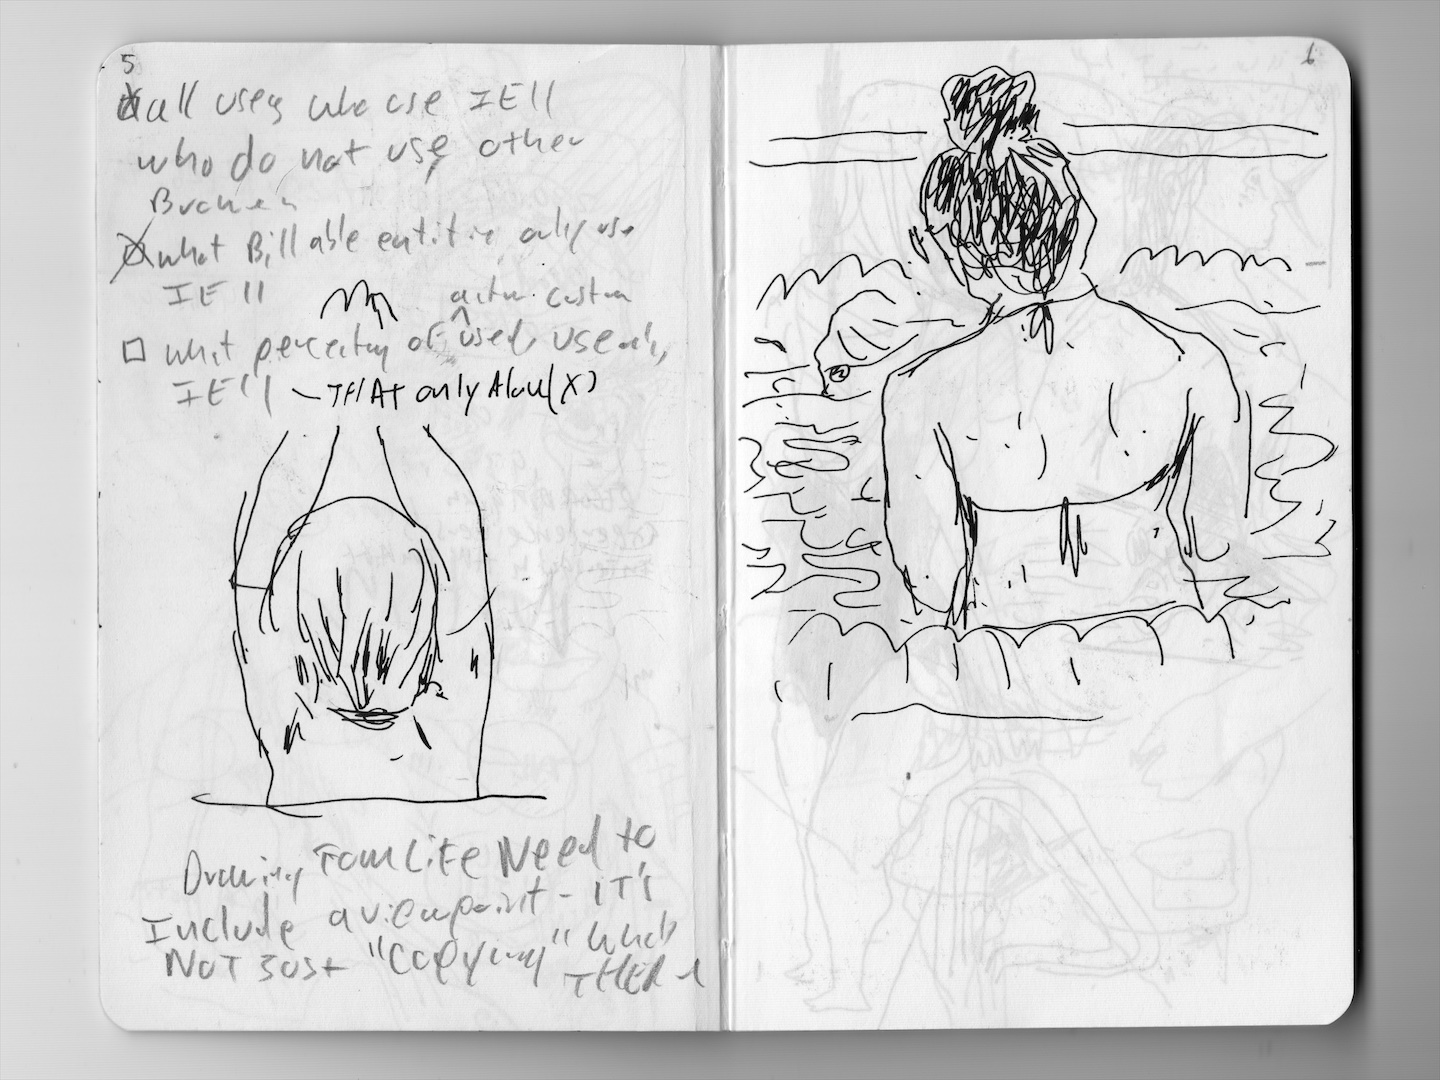 5
6
all users who use IE11
who do not use other
what Billable entities only use
IE11
active custom
what percentage of users use only
IE11 - THAT only Alow(x)
Drawing From Life Need to
Include a viewpoint - IT'S
NOT JUST "copying" what
THERE